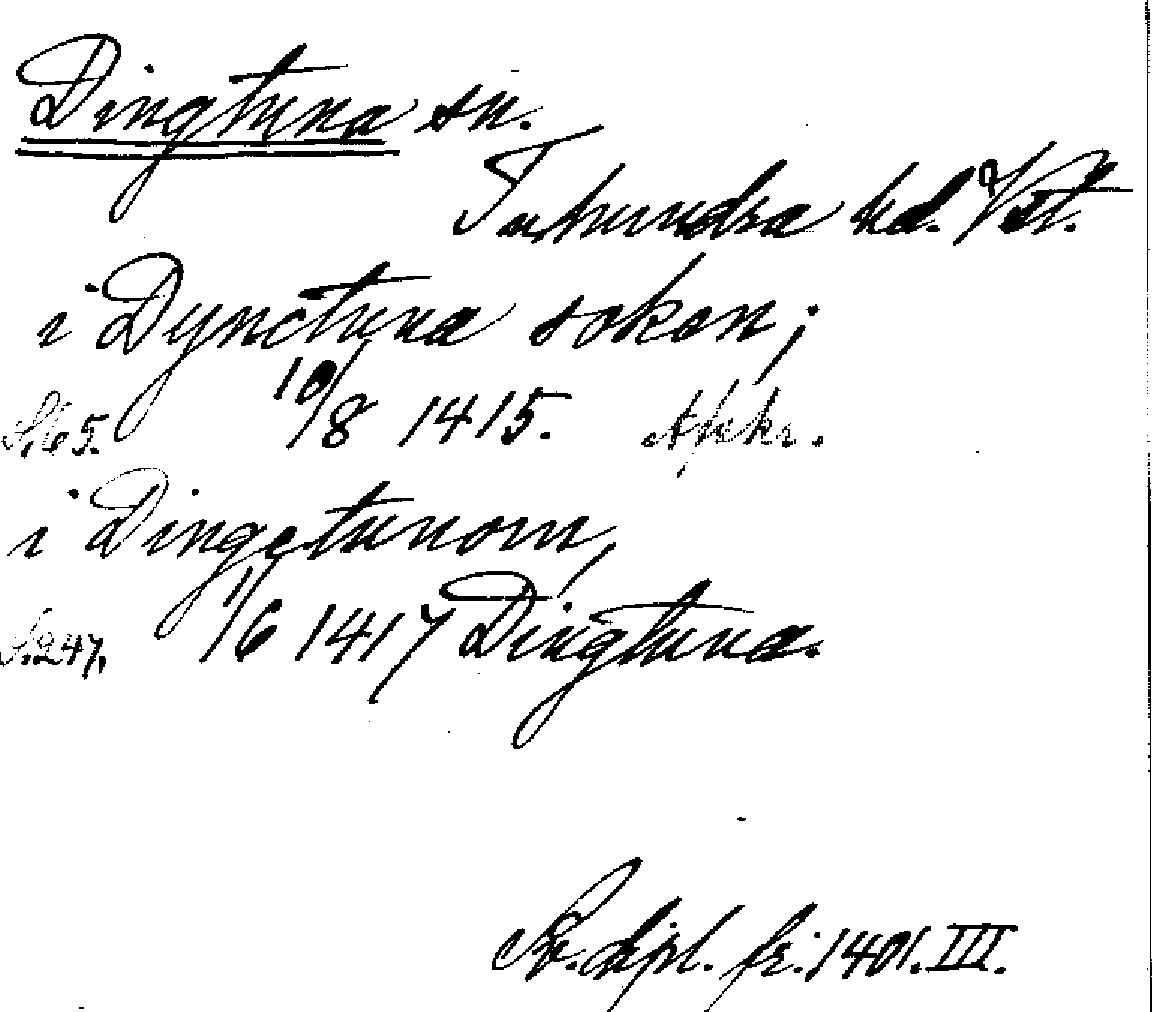 Dingtuna sn.
Tuhundra hd. Vstl.
i Dynctuna soken;
S. 65. 10/8 1415. Afskr.
i Dingctunom,
S. 247. 1/6 1417 Dingtuna.
Sv. dipl. fr. 1401. III.